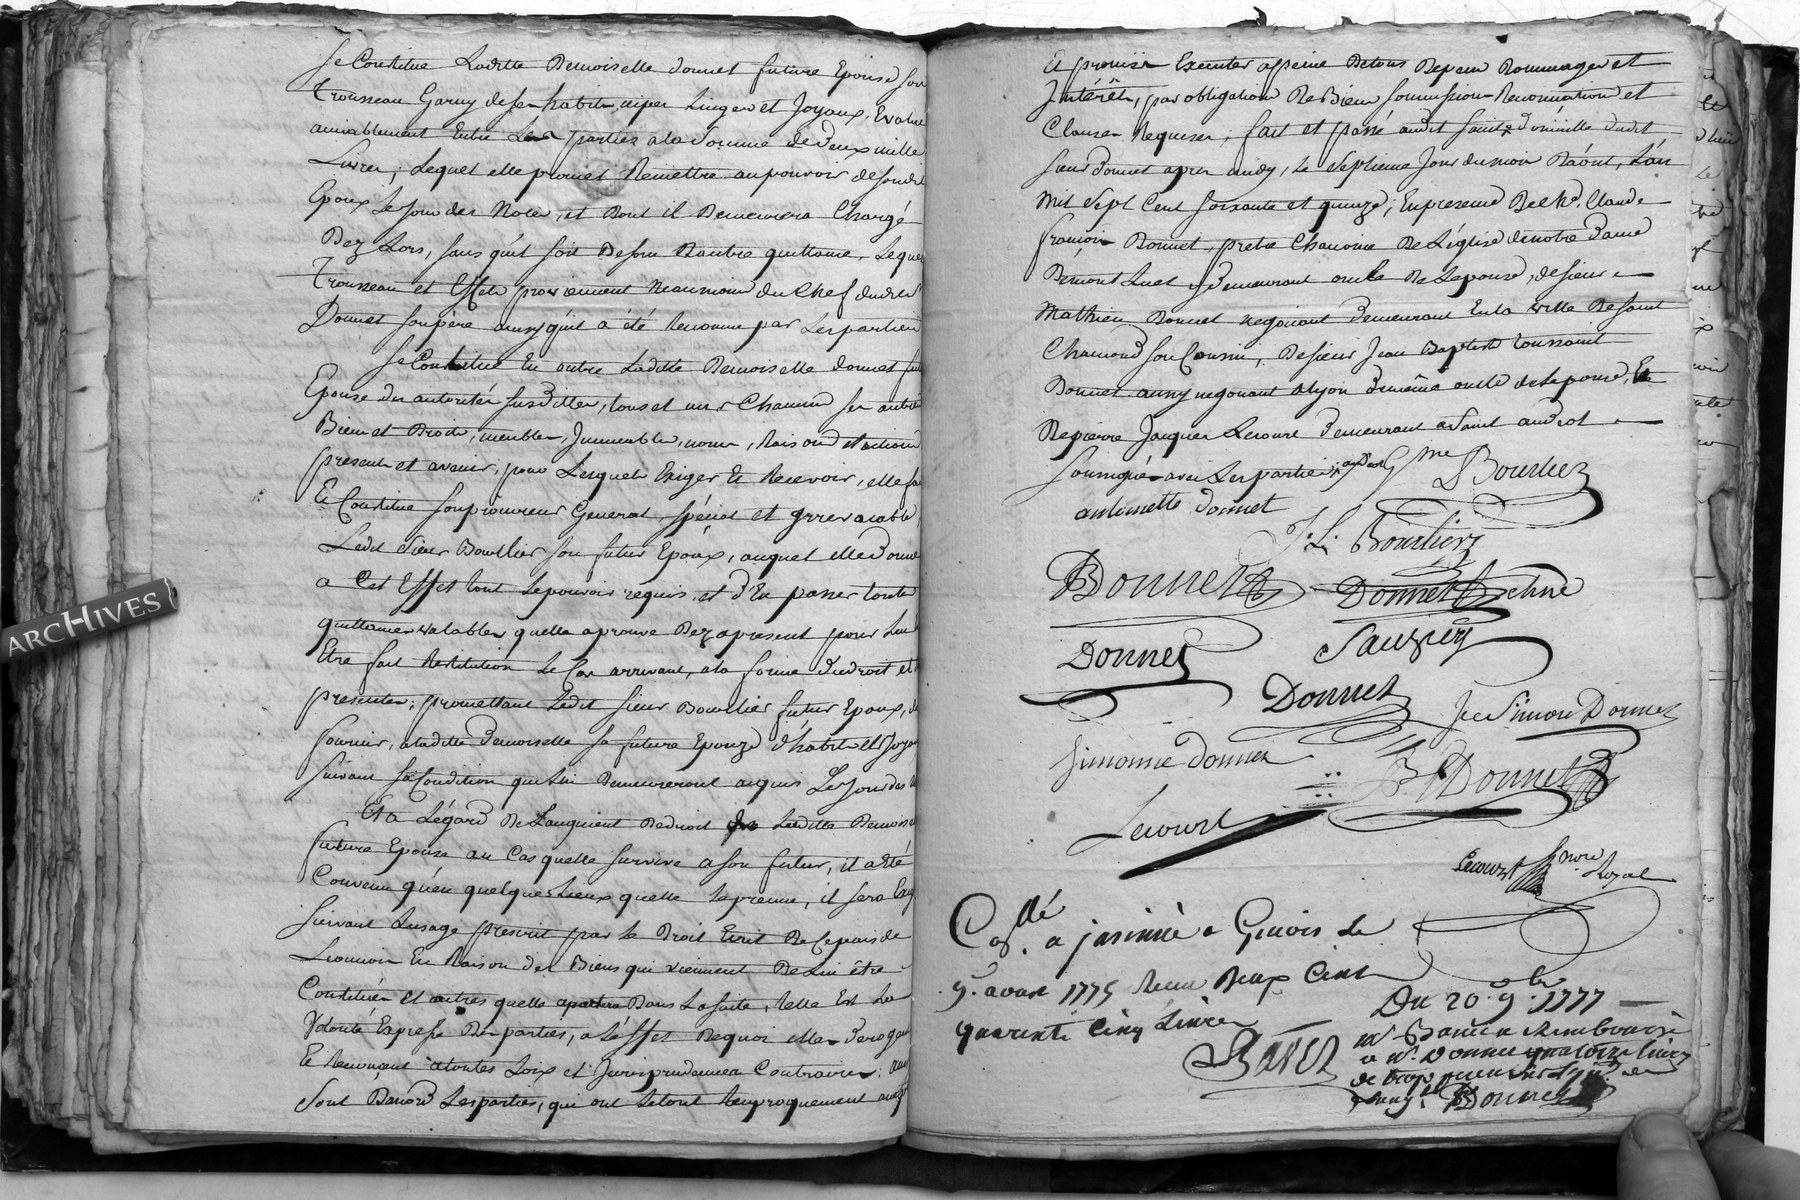 Se Constitue Laditte Demoiselle donnet future Epouse son
Trousseau Garny de ses habits, nipes Linges et Joyaux, Evalué
amiablement Entre Les parties ala Somme de deux mille
Livres, Lequel elle promet Remettre au pouvoir de sondit
Epoux Le jour des Noces, et Dont il Demeurera Chargé
Dez Lors, sans quil soit Besoin Dautre quittance, Lequel
Trousseau et Effets proviennent neanmoins du Chef dudit Sr
Donnet son père ainsy quil a été Reconnu par Les parties
Se Constitue En outre Laditte Demoiselle donnet future
Epouse des autorités susdittes, tous et uns Chacuns ses autres
Biens et Droits, meubles, Jmmeubles, noms, Raisons et actions
presents et avenir, pour Lesquels Exiger Et Recevoir, elle fait
Et Constitue son procureur General, spécial et Jrrevocable,
Ledit Sieur Bourlier son futur Epoux, auquel elle Donne
a Cet Effet tout Le pouvoir requis, et d'En passer toutes
quittances valables quelle aprouve Dez apresent pour Lui
Etre fait Restitution Le Cas arrivant, ala forme du droit et
presentes; promettant Ledit sieur Bourlier futur Epoux, de
fournir, aladitte demoiselle sa future Epouze d'habits et Joyaux
suivant sa Condition qui Lui Demeureront acquis Le Jour des
Et a Légard De Laugment De droit de Laditte Demoiselle
future Epouse au Cas quelle survive a son futur, il a été
Convenu qu'en quelques Lieux quelle Leprenne, il sera Exigé
suivant Lusage prescrit par le Droit Ecrit De Ce païs de
Lionnois En Raison des Biens qui viennent De Lui être
Constitués et autres quelle aportera Dans La suite, telle Est La
Volonté Expresse Des parties, a Léffet Dequoi elles Derogent
Et Renonçent a toutes Loix et Jurisprudences Contraires. ainsi
sont Daccord Les parties, qui ont Le tout Reciproquement accepté
Et promis Executer apeine De tous Depens Dommages et
Jntérêts, par obligation De Biens soumission Renonciation et
Clauses Requises; fait et passé audit saint domicille dudit
sieur Donnet apres midy, Le Septieme Jour du mois D'août, L'an
mil sept Cent soixante et quinze; En presence De Me Claude
françois Donnet, pretre Chanoine De L'église de notre dame
De mont Luel y demeurant oncle De Lepouse, de sieur
Mathieu Donnet negociant demeurant En la ville De saint
Chamond son Cousin, De sieur Jean Baptiste toussaint
Donnet aussy negociant a Lyon de même oncle de Lepouse, Et
De pierre Jacques Lecourt demeurant a saint andiol
soussignés avec Les parties Gme D Bourlier
antoinette donnet
J. L. Bourlier
Donnet Donnet chne
Donnet Sauzey
Donnet Jee Simon Donnet
Simonne donnet B T Donnet
Lecourt
Lecourt Nore Royal
Collé a insinué a Givors le
9. aoust 1775 Recu Deux Cent
quarente Cinq Livres
Du 20 . 9bre . 1777
Donnet